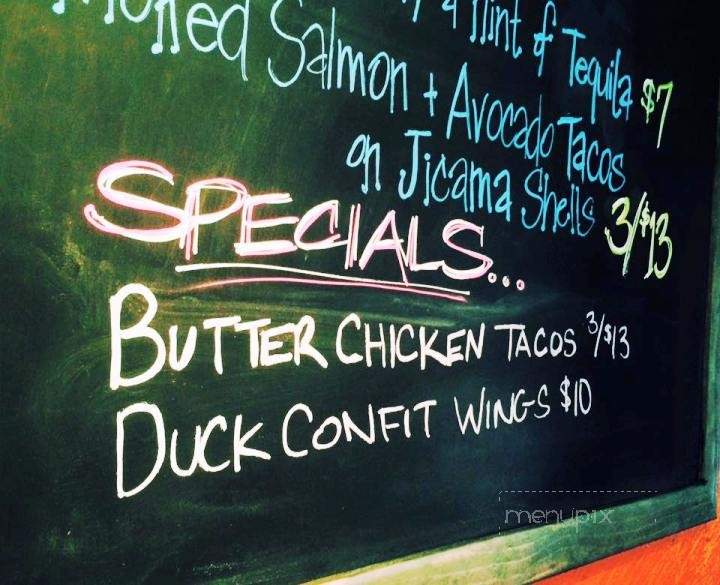 Mint & Tequila $7
Salmon + Avocado Tacos
on Jicama Shells 3/$13
SPECIALS...
BUTTER CHICKEN TACOS 3/$13
DUCK CONFIT WINGS $10
menupix